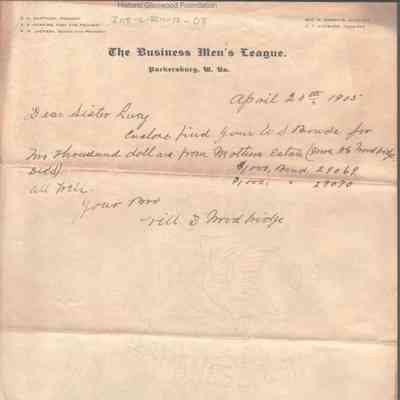 Historic Glenwood Foundation
The Business Men's League.
Parkersburg, W. Va.
April 20th 1905
Dear Sister Lucy
Enclose find your U S Bonds for
Two thousand dollars from Mothers Estate
$1,000, Bond, 29069
$1,000, " 29070
all well
Your Bro
Will D Woodbridge